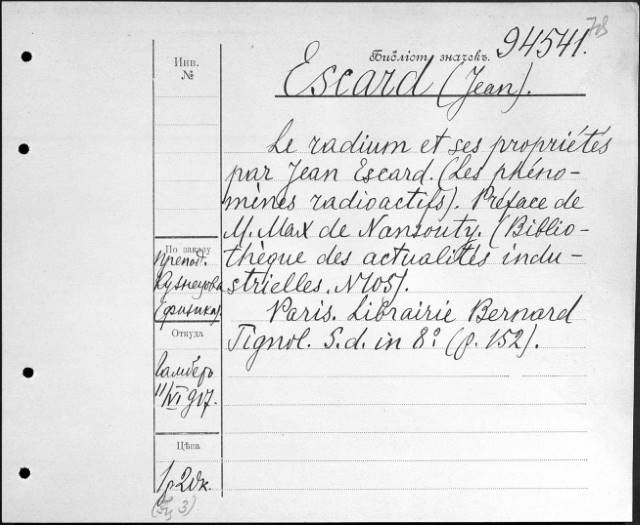 78
Библіот. значекъ. 94541.
Инв.
№
Escard (Jean).
Le radium et ses propriétés
par Jean Escard. (Les phéno-
mènes radioactifs). Préface de
M. Max de Nansouty. (Biblio-
thèque des actualités indu-
strielles. N105).
Paris. Librairie Bernard
Tignol. S.d. in 8° (p. 152).
По заказу
препод.
Кузнецова
(физика).
Откуда
Гамберъ
11/VI 917.
Цѣна
1р 20к.